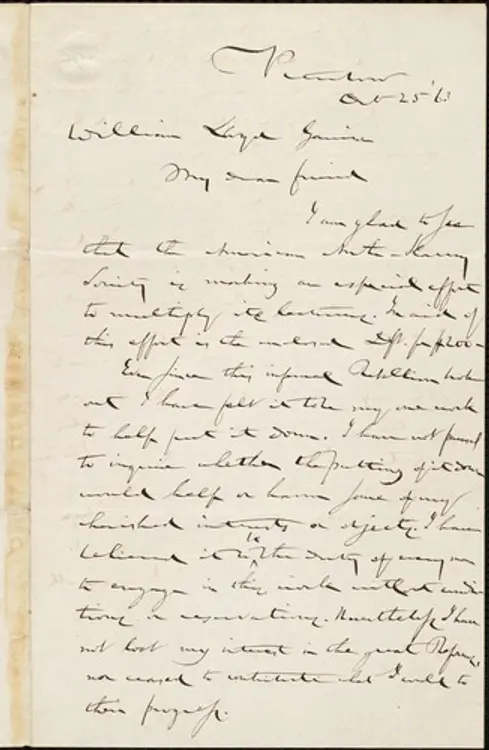 Peterboro
Oct 25 '63
William Lloyd Garrison
My dear friend
I am glad to see
that the American Anti-Slavery
Society is making an especial effort
to multiply its lectures. In aid of
this effort is the enclosed Dft. for $200—
Ever since this infernal Rebellion broke
out I have felt it to be my one work
to help put it down. I have not paused
to inquire whether the putting of it down
would help or harm some of my
cherished interests or objects. I have
believed it to be the duty of every one
to engage in this work without condi
tions or reservations. Nevertheless, I have
not lost my interest in the great Reforms,
nor ceased to contribute what I could to
their progress.